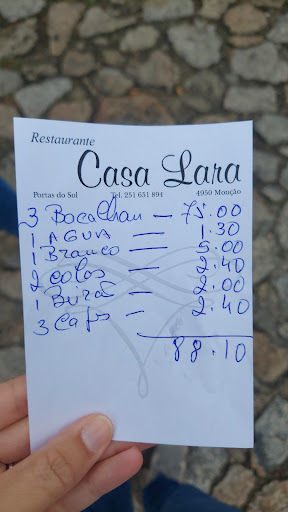 Restaurante
Casa Lara
Portas do Sol Tel. 251 651 894 4950 Monção
3 Bocalhau — 75.00
1 AGUA — 1.30
1 Branco — 5.00
2 colos — 2.40
1 Beirão — 2.00
3 Cafs — 2.40
88.10